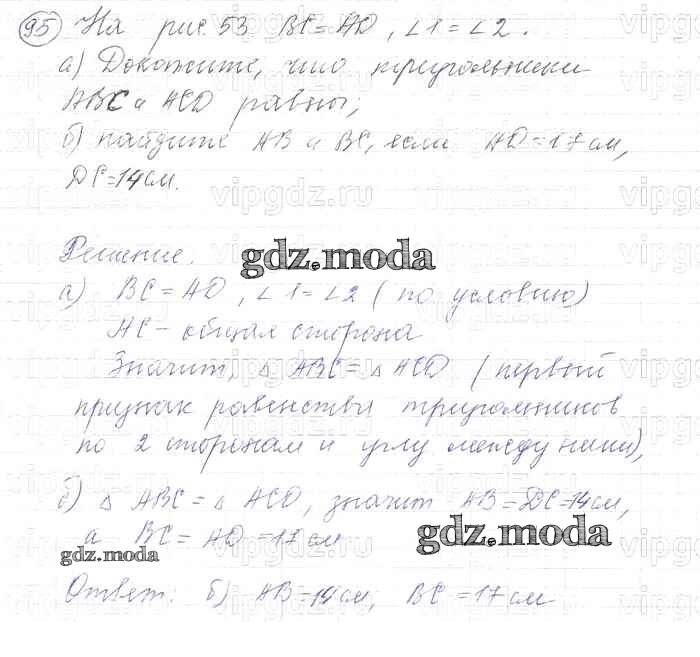 95) На рис. 53 BC=AD, ∠1=∠2.
а) Докажите, что треугольники
ABC и ACD равны;
б) найдите AB и BC, если AD=17см,
DC=14см.
Решение.
gdz.moda
а) BC=AD, ∠1=∠2 (по условию)
AC - общая сторона
Значит, △ ABC=△ ACD (первый
признак равенства треугольников
по 2 сторонам и углу между ними),
б) △ ABC=△ ACD, значит AB=DC=14см,
а BC=AD=17см
gdz.moda
gdz.moda
Ответ: б) AB=14см, BC=17см